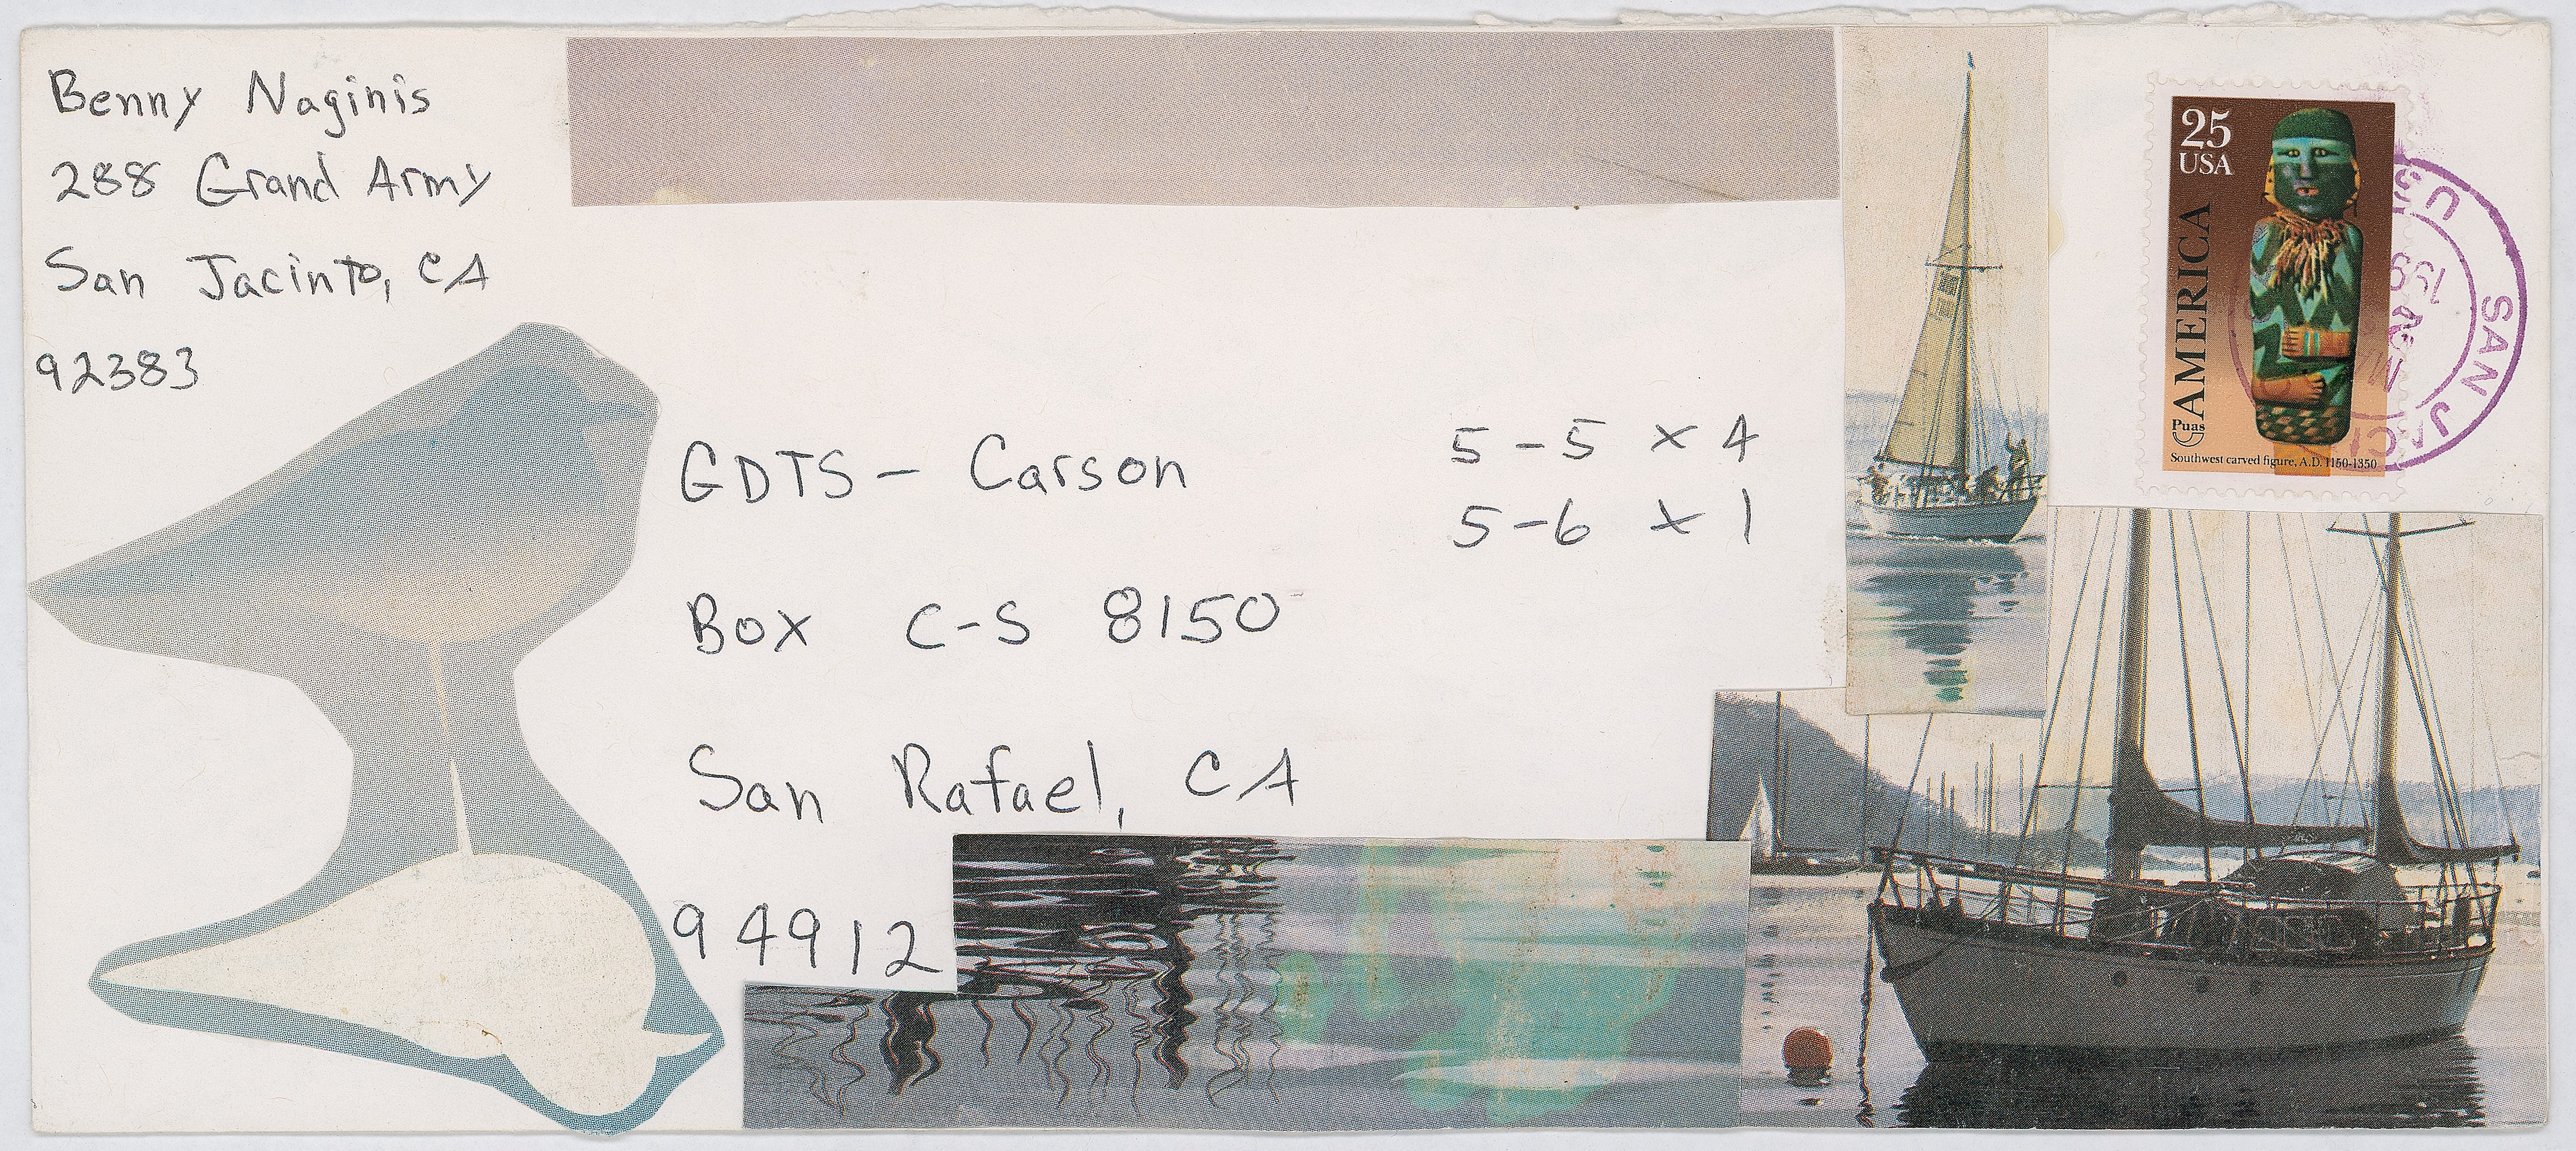 Benny Naginis
288 Grand Army
San Jacinto, CA
92383
GDTS - Carson
Box C-S 8150
San Rafael, CA
94912
5-5 x 4
5-6 x 1
25
USA
AMERICA
Puas
Southwest carved figure, A.D. 1150-1350
SAN